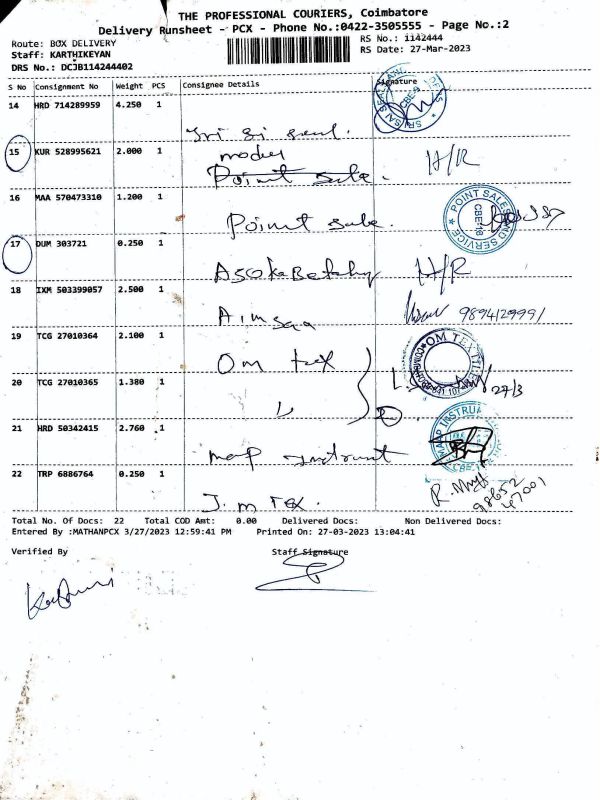 THE PROFESSIONAL COURIERS, Coimbatore
Delivery Runsheet - PCX - Phone No.:0422-3505555 - Page No.:2
Route: BOX DELIVERY
RS No.: 1142444
Staff: KARTHIKEYAN
RS Date: 27-Mar-2023
DRS No.: DCJB114244402
S No Consignment No Weight PCS Consignee Details Signature
14 HRD 714289959 4.250 1
Sri Sai
15 KUR 528995621 2.000 1 model H/R
Point sale.
16 MAA 570473310 1.200 1
Point sale. POINT SALES AND SERVICE CBE-18
17 DUM 303721 0.250 1
Asoka H/R
18 IXM 503399057 2.500 1
9894129991
19 TCG 27010364 2.100 1
Om tex OM TEX
20 TCG 27010365 1.380 1 27/3
2
21 HRD 50342415 2.760 1
map MAAP INSTRU
22 TRP 6886764 0.250 1
98652
47001
J.m Tex.
Total No. Of Docs: 22 Total COD Amt: 0.00 Delivered Docs: Non Delivered Docs:
Entered By :MATHANPCX 3/27/2023 12:59:41 PM Printed On: 27-03-2023 13:04:41
Verified By Staff Signature